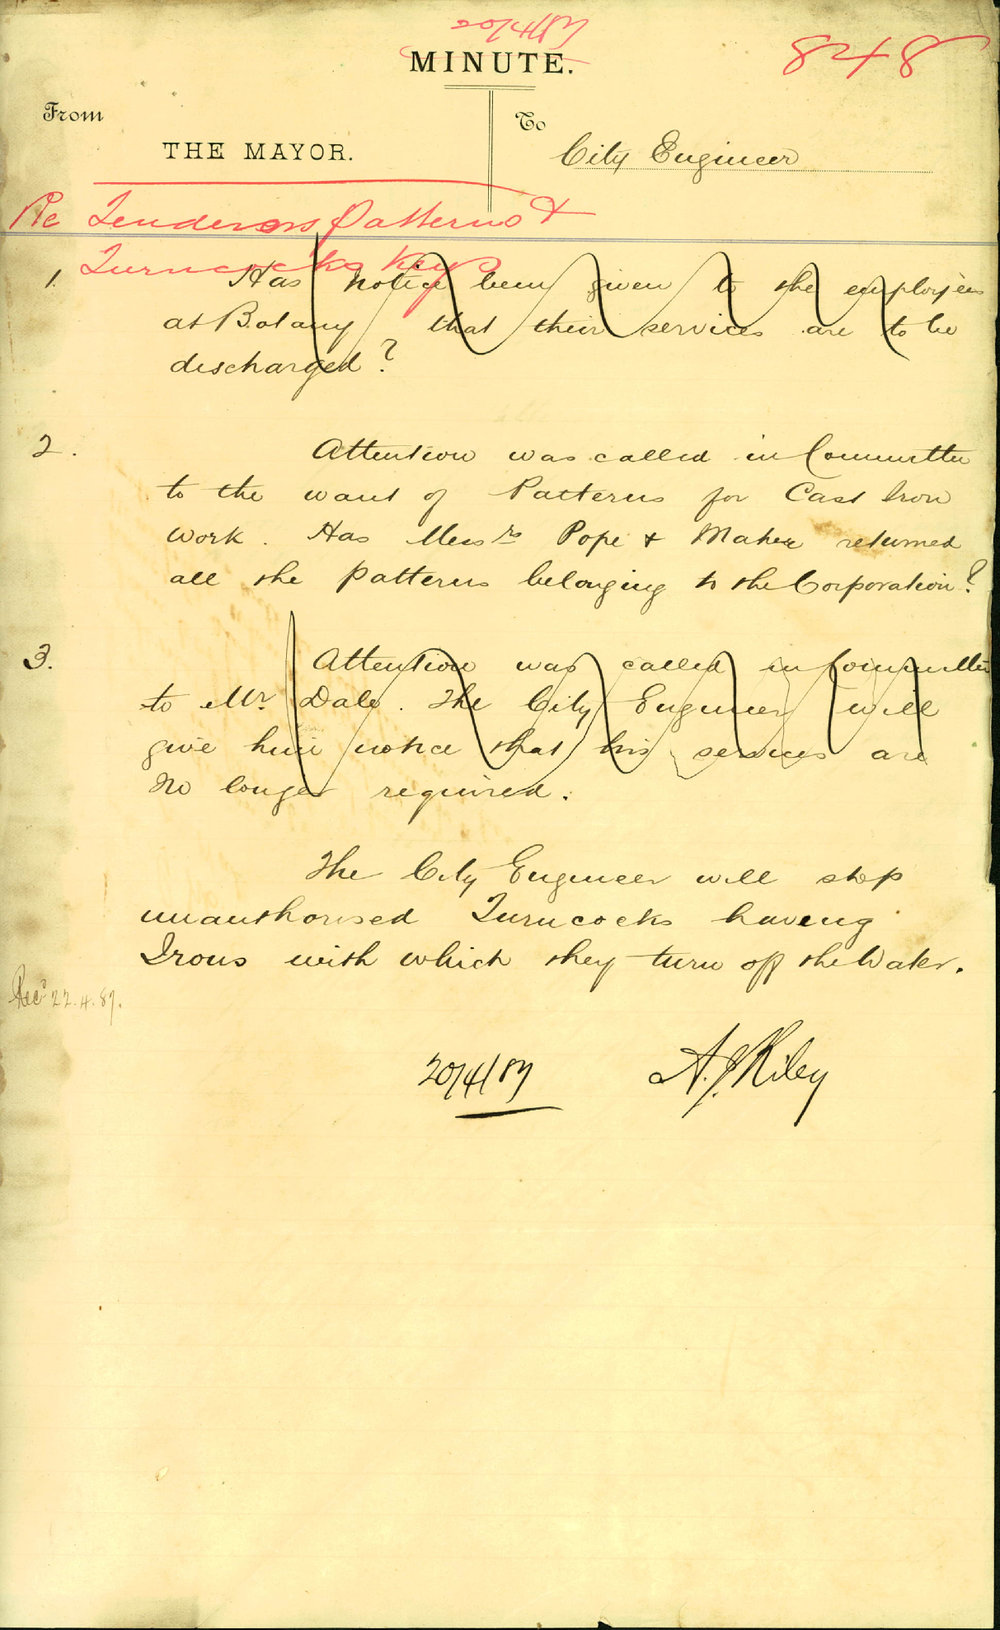 20/4/87
MINUTE.
848
From
THE MAYOR.
To
City Engineer
Re Tenders Patterns &
Turncocks Keys
1. Has notice been given to the employees
at Botany that their services are to be
discharged?
2. Attention was called in Committee
to the want of Patterns for Cast Iron
work. Has Messrs Pope & Maher returned
all the patterns belonging to the Corporation?
3. Attention was called in Committee
to Mr. Dale. The City Engineer will
give him notice that his services are
no longer required.
The City Engineer will stop
unauthorised Turncocks having
Irons with which they turn off the Water.
Recd 22.4.87.
20/4/87 A.J. Riley